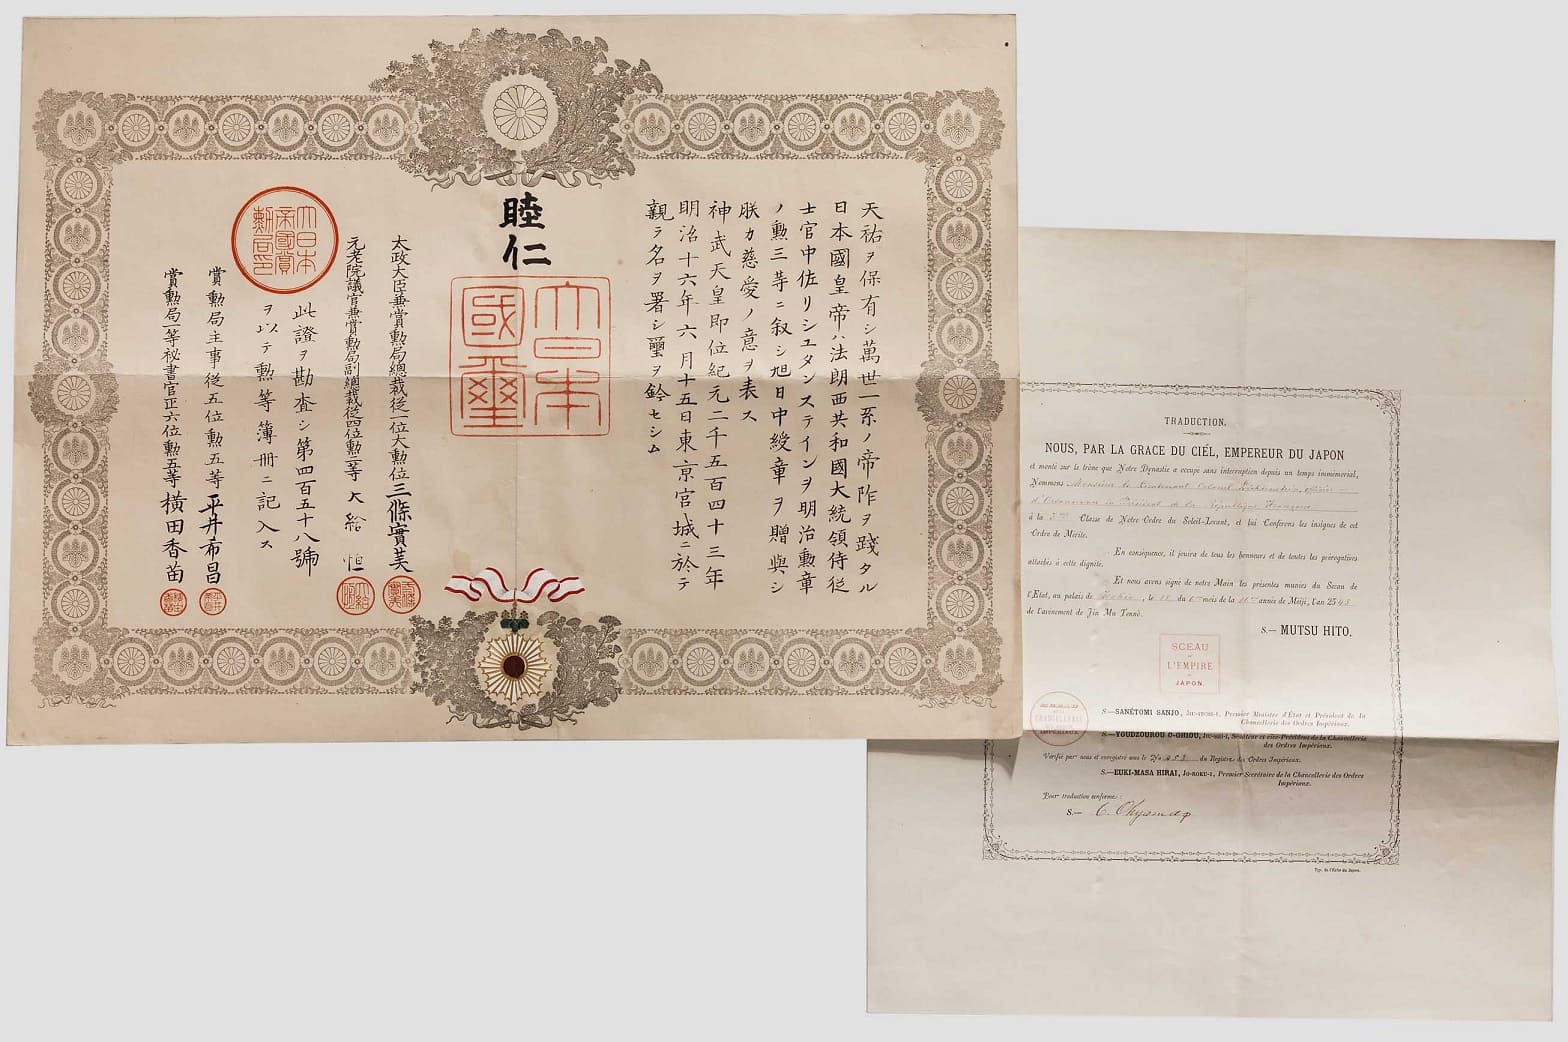 天祐ヲ保有シ萬世一系ノ帝祚ヲ踐タル
日本國皇帝ハ法朗西共和國大統領侍従
士官中佐リシュタンステインヲ明治勲章
ノ勲三等ニ叙シ旭日中綬章ヲ贈與シ
朕カ慈愛ノ意ヲ表ス
神武天皇即位紀元二千五百四十三年
明治十六年六月十五日東京宮城ニ於テ
親ラ名ヲ署シ璽ヲ鈐セシム
睦仁
大日本
國璽
太政大臣兼賞勲局總裁従一位大勲位三條實美
元老院議官兼賞勲局副總裁従四位勲二等大給恒
大日本
帝國賞
勲局印
此證ヲ勘査シ第四百五十八號
ヲ以テ勲等簿冊ニ記入ス
賞勲局主事従五位勲五等平井希昌
賞勲局一等秘書官正六位勲五等横田香苗
TRADUCTION.
NOUS, PAR LA GRACE DU CIÉL, EMPEREUR DU JAPON
et monté sur le trône que Notre Dynastie a occupé sans interruption depuis un temps immémorial,
Nommons Monsieur le Lieutenant Colonel officier
d'Ordonnance du Président de la République Française
à la 3me Classe de Notre Ordre du Soleil-Levant, et lui Conférons les insignes de cet
Ordre de Mérite.
En conséquence, il jouira de tous les honneurs et de toutes les prérogatives
attachés à cette dignité.
Et nous avons signé de notre Main les présentes munies du Sceau de
l'Etat, au palais de Tokio, le 15 du 6me mois de la 16me année de Méiji, l'an 2543
de l'avénement de Jin Mu Tennô.
S.— MUTSU HITO.
SCEAU
DE
L'EMPIRE
DU
JAPON.
CHANCELLERIE
S.—SANÉTOMI SANJO, Premier Ministre d'État et Président de la
Chancellerie des Ordres Impériaux.
S.—YOUDZOUROU O-GHIOU, Sénateur et vice-Président de la Chancellerie
des Ordres Impériaux.
Vérifié par nous et enregistré sous le No 458 du Registre des Ordres Impériaux.
S.—EUKI-MASA HIRAI, Jo-roku-i, Premier Secrétaire de la Chancellerie des Ordres
Impériaux.
Pour traduction conforme:
S.—
Typ. de l'Echo du Japon.